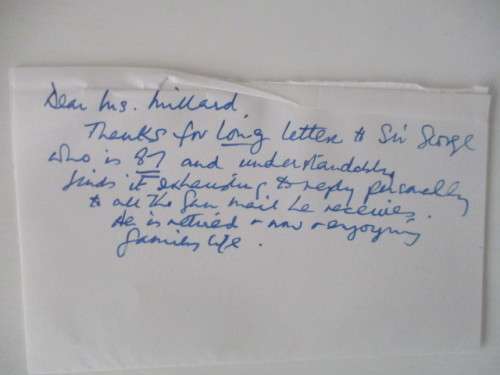 Dear Ms. Millard
Thanks for Long letter to Sir George
who is 87 and understandably
finds it exhausting to reply personally
to all the fan mail he receives.
He is retired + now + enjoying
family life.